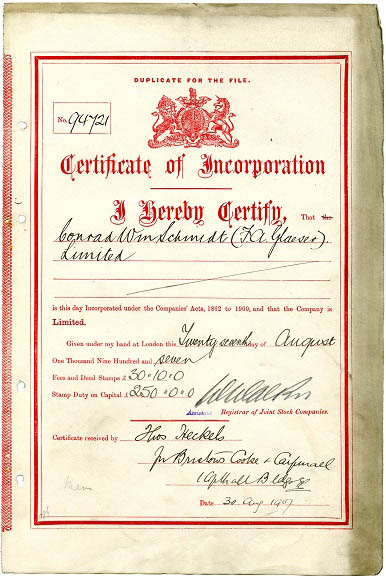 DUPLICATE FOR THE FILE.
No. 94721
Certificate of Incorporation
I Hereby Certify, That the
Conrad Wm Schmidt (F.A. Glaeser)
Limited
is this day Incorporated under the Companies' Acts, 1862 to 1900, and that the Company is
Limited.
Given under my hand at London this Twenty seventh day of August
One Thousand Nine Hundred and seven
Fees and Deed Stamps £ 30.10.0
Stamp Duty on Capital £ 250.0.0
Assistant Registrar of Joint Stock Companies.
Certificate received by Thos Heckels
for Bristows Cooke & Carpmael
1 Copthall Bldgs
Date 30 Aug 1907